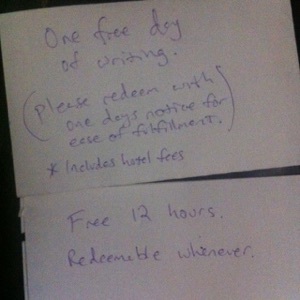 One free day
of writing.
(Please redeem with
one days notice for
ease of fulfillment.)
* Includes hotel fees
Free 12 hours.
Redeemable whenever.